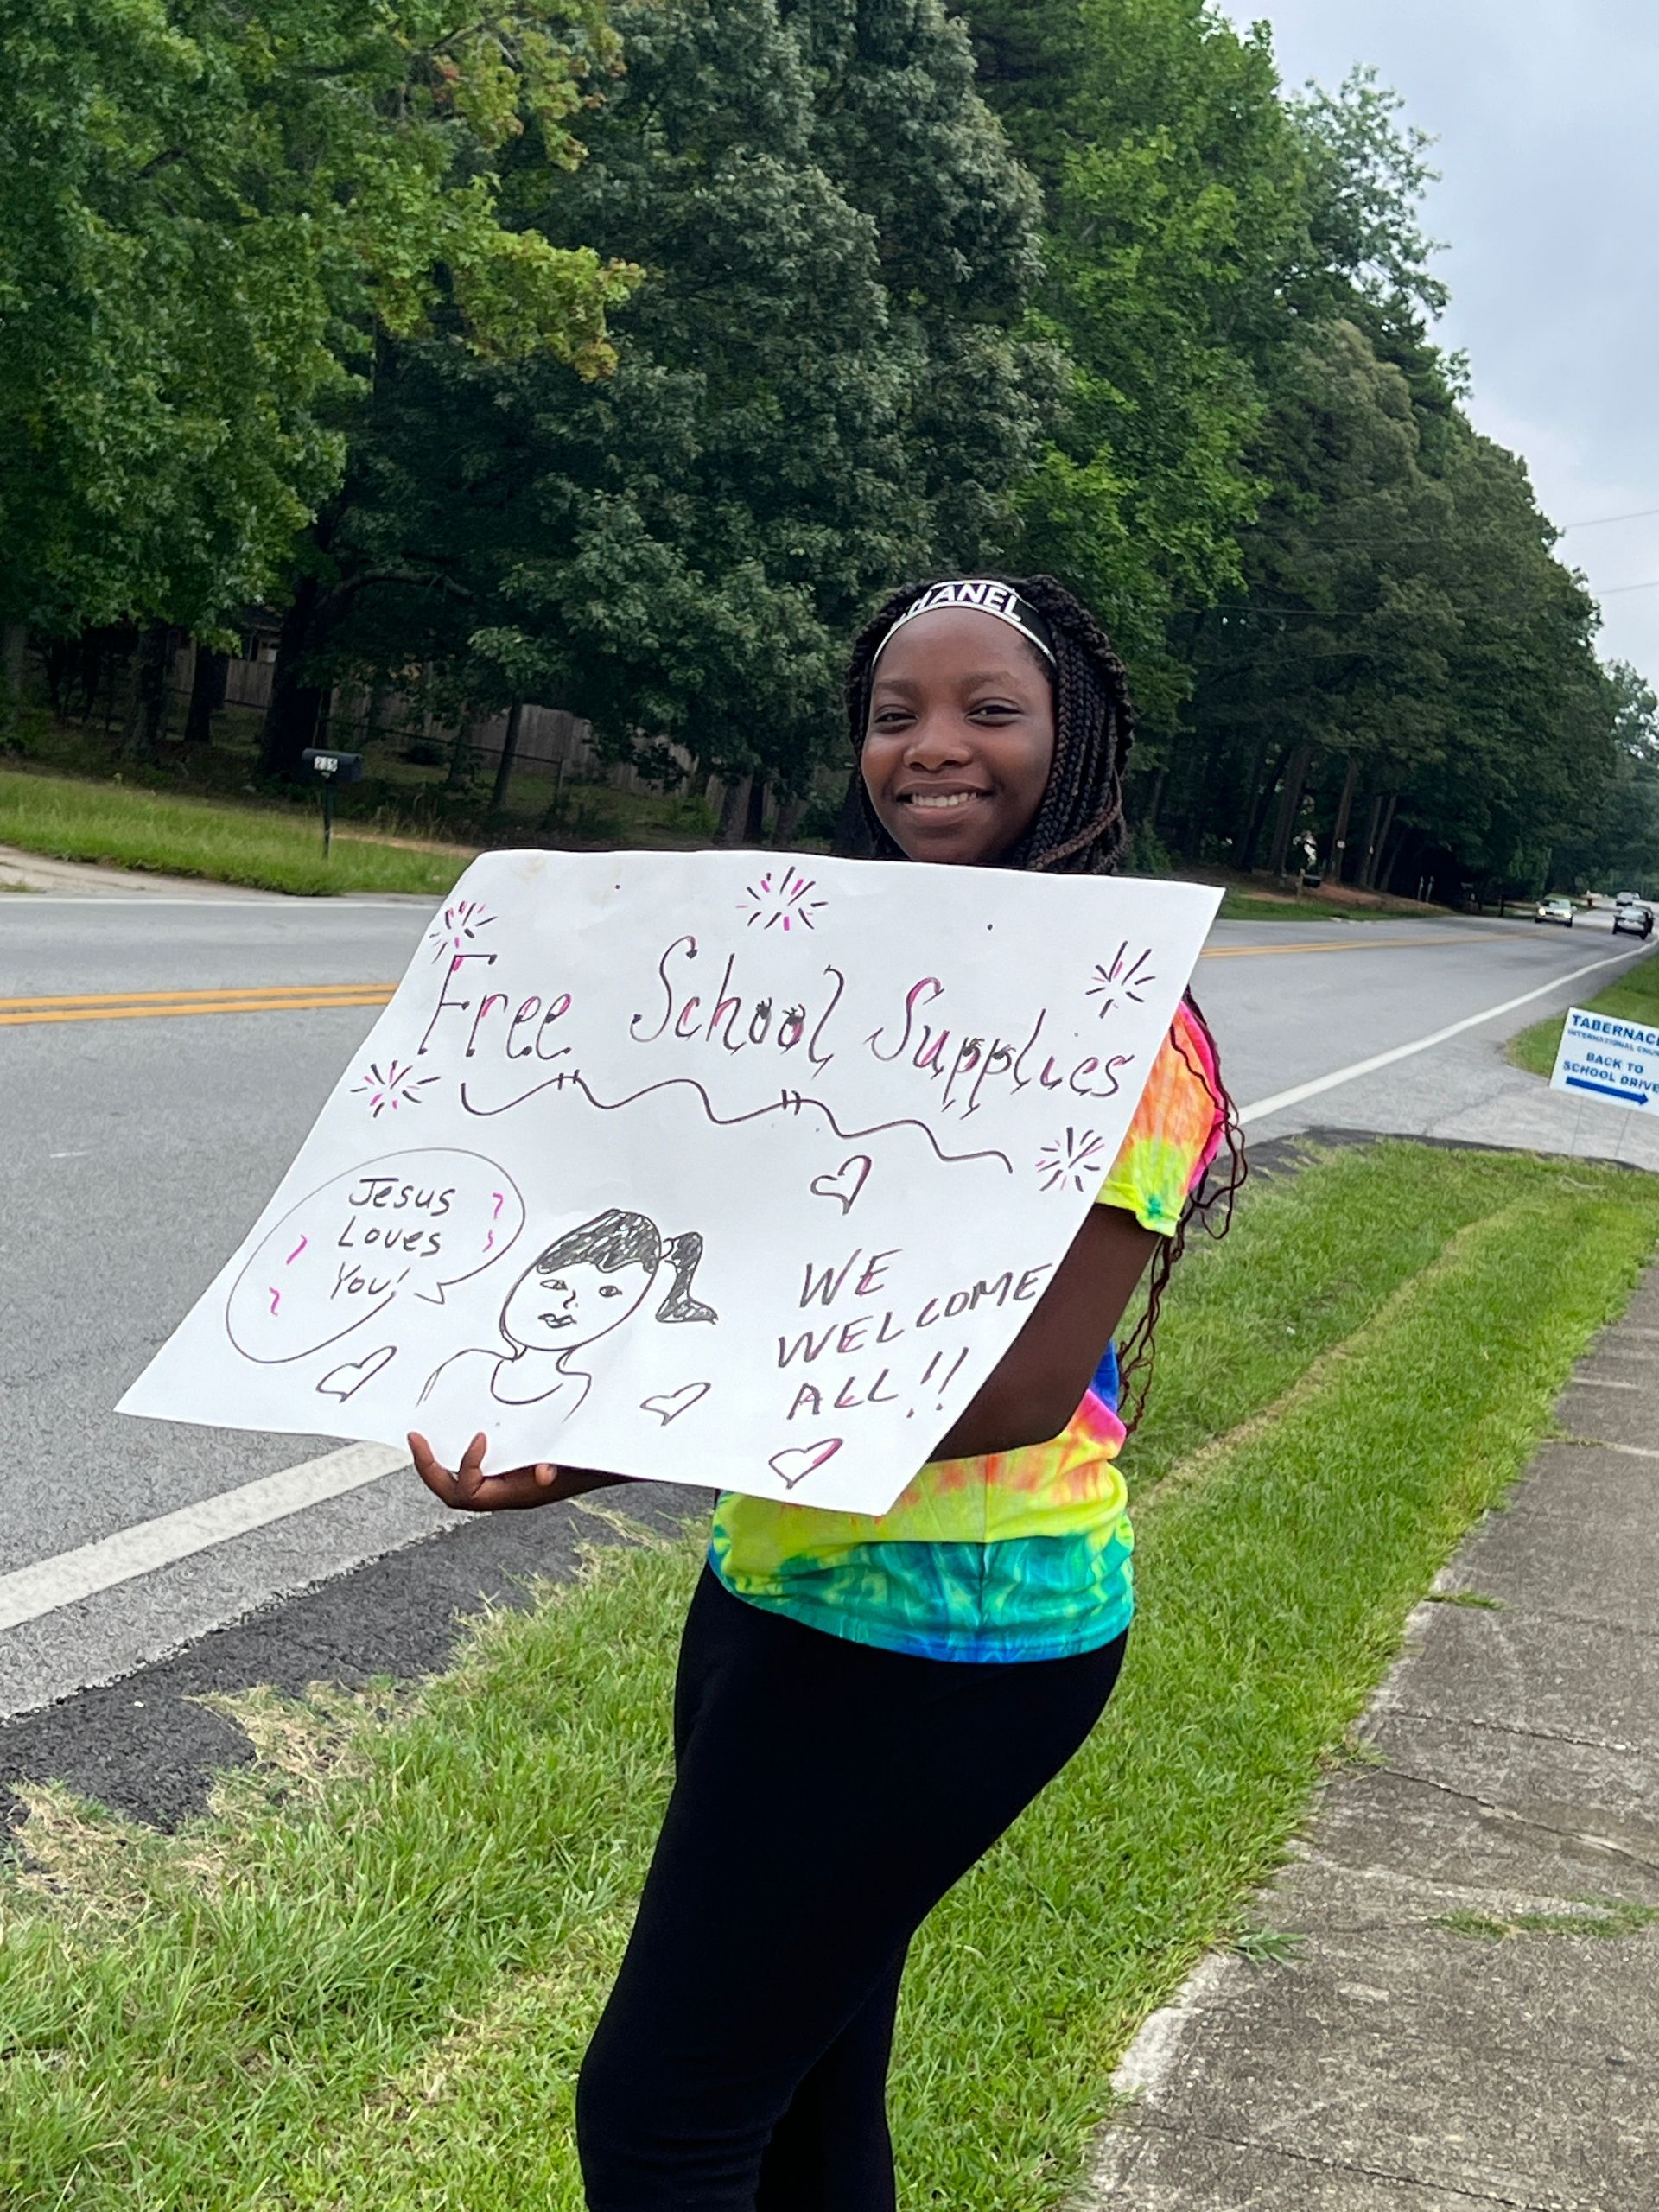 Free School Supplies
Jesus
Loves
You!
WE
WELCOME
ALL!!
HANEL
TABERNAC
INTERNATIONAL CHU
BACK TO
SCHOOL DRIVE
235